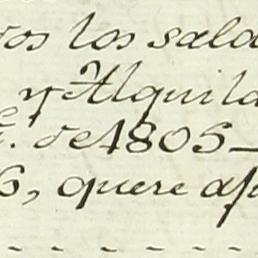 vos los sald
y Alquila
E. de 1805_
6, quere apu